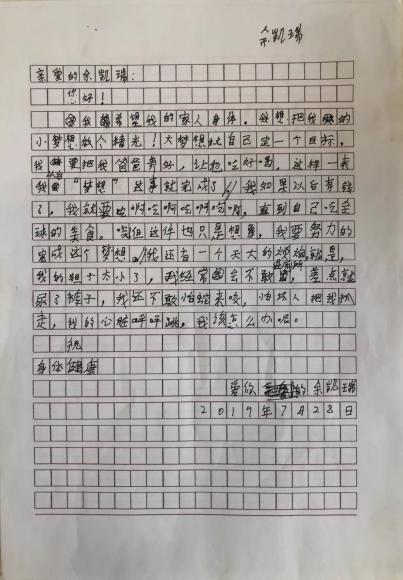 余凯瑞
亲爱的余凯瑞:
你好!
我希望我的家人身体。我想把我的
小梦想做人精光!大梦想就自己定一个目标。
我里把我爸爸养好,让他吃好喝,这样一来
我“梦想”这事就完成了//我如果以后有钱
了,我就要吃啊吃啊吃啊吃啊,直到自己吃全
球的美食。但这件也只是想象,我要努力的
完成这个梦想//我还有一个天大的烦恼就是,
我的胆子太小了,我经常都不敢上厕所,差点就
尿了裤子,我还不敢怕蛇来咬,怕坏人把我抓
走,我的心脏呼呼跳,我该怎么办呢。
祝
身体健康
爱你的余凯瑞
2019年7月28日